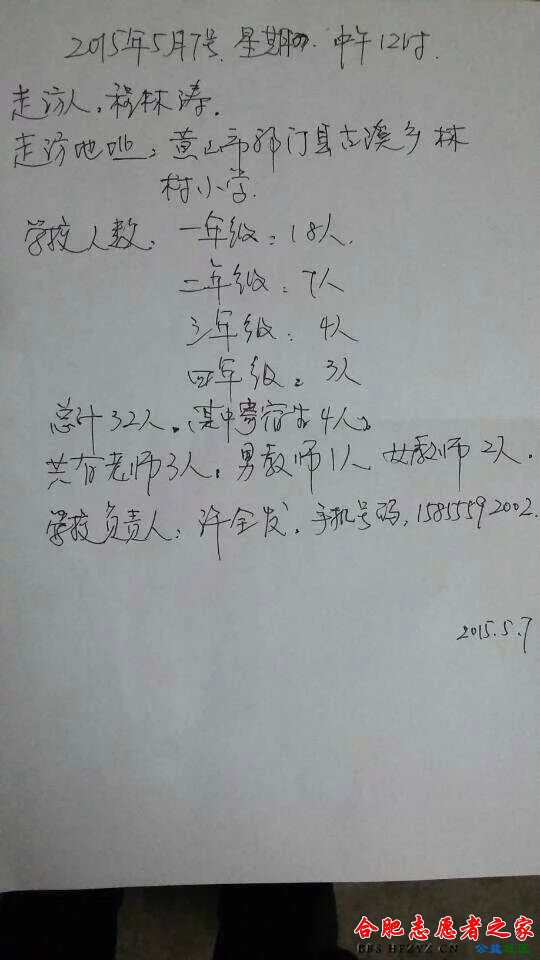 2015年5月7号.星期四.中午12时.
走访人：程林涛.
走访地址：黄山市祁门县古溪乡林
村小学.
学校人数：一年级：18人.
二年级：7人
三年级：4人
四年级：3人
总计32人.(其中寄宿生4人)
共有老师3人.男教师1人.女教师2人.
学校负责人：许金发.手机号码：15855592002.
2015.5.7
合肥志愿者之家
BBS.HFZYZ.CN 公益社区